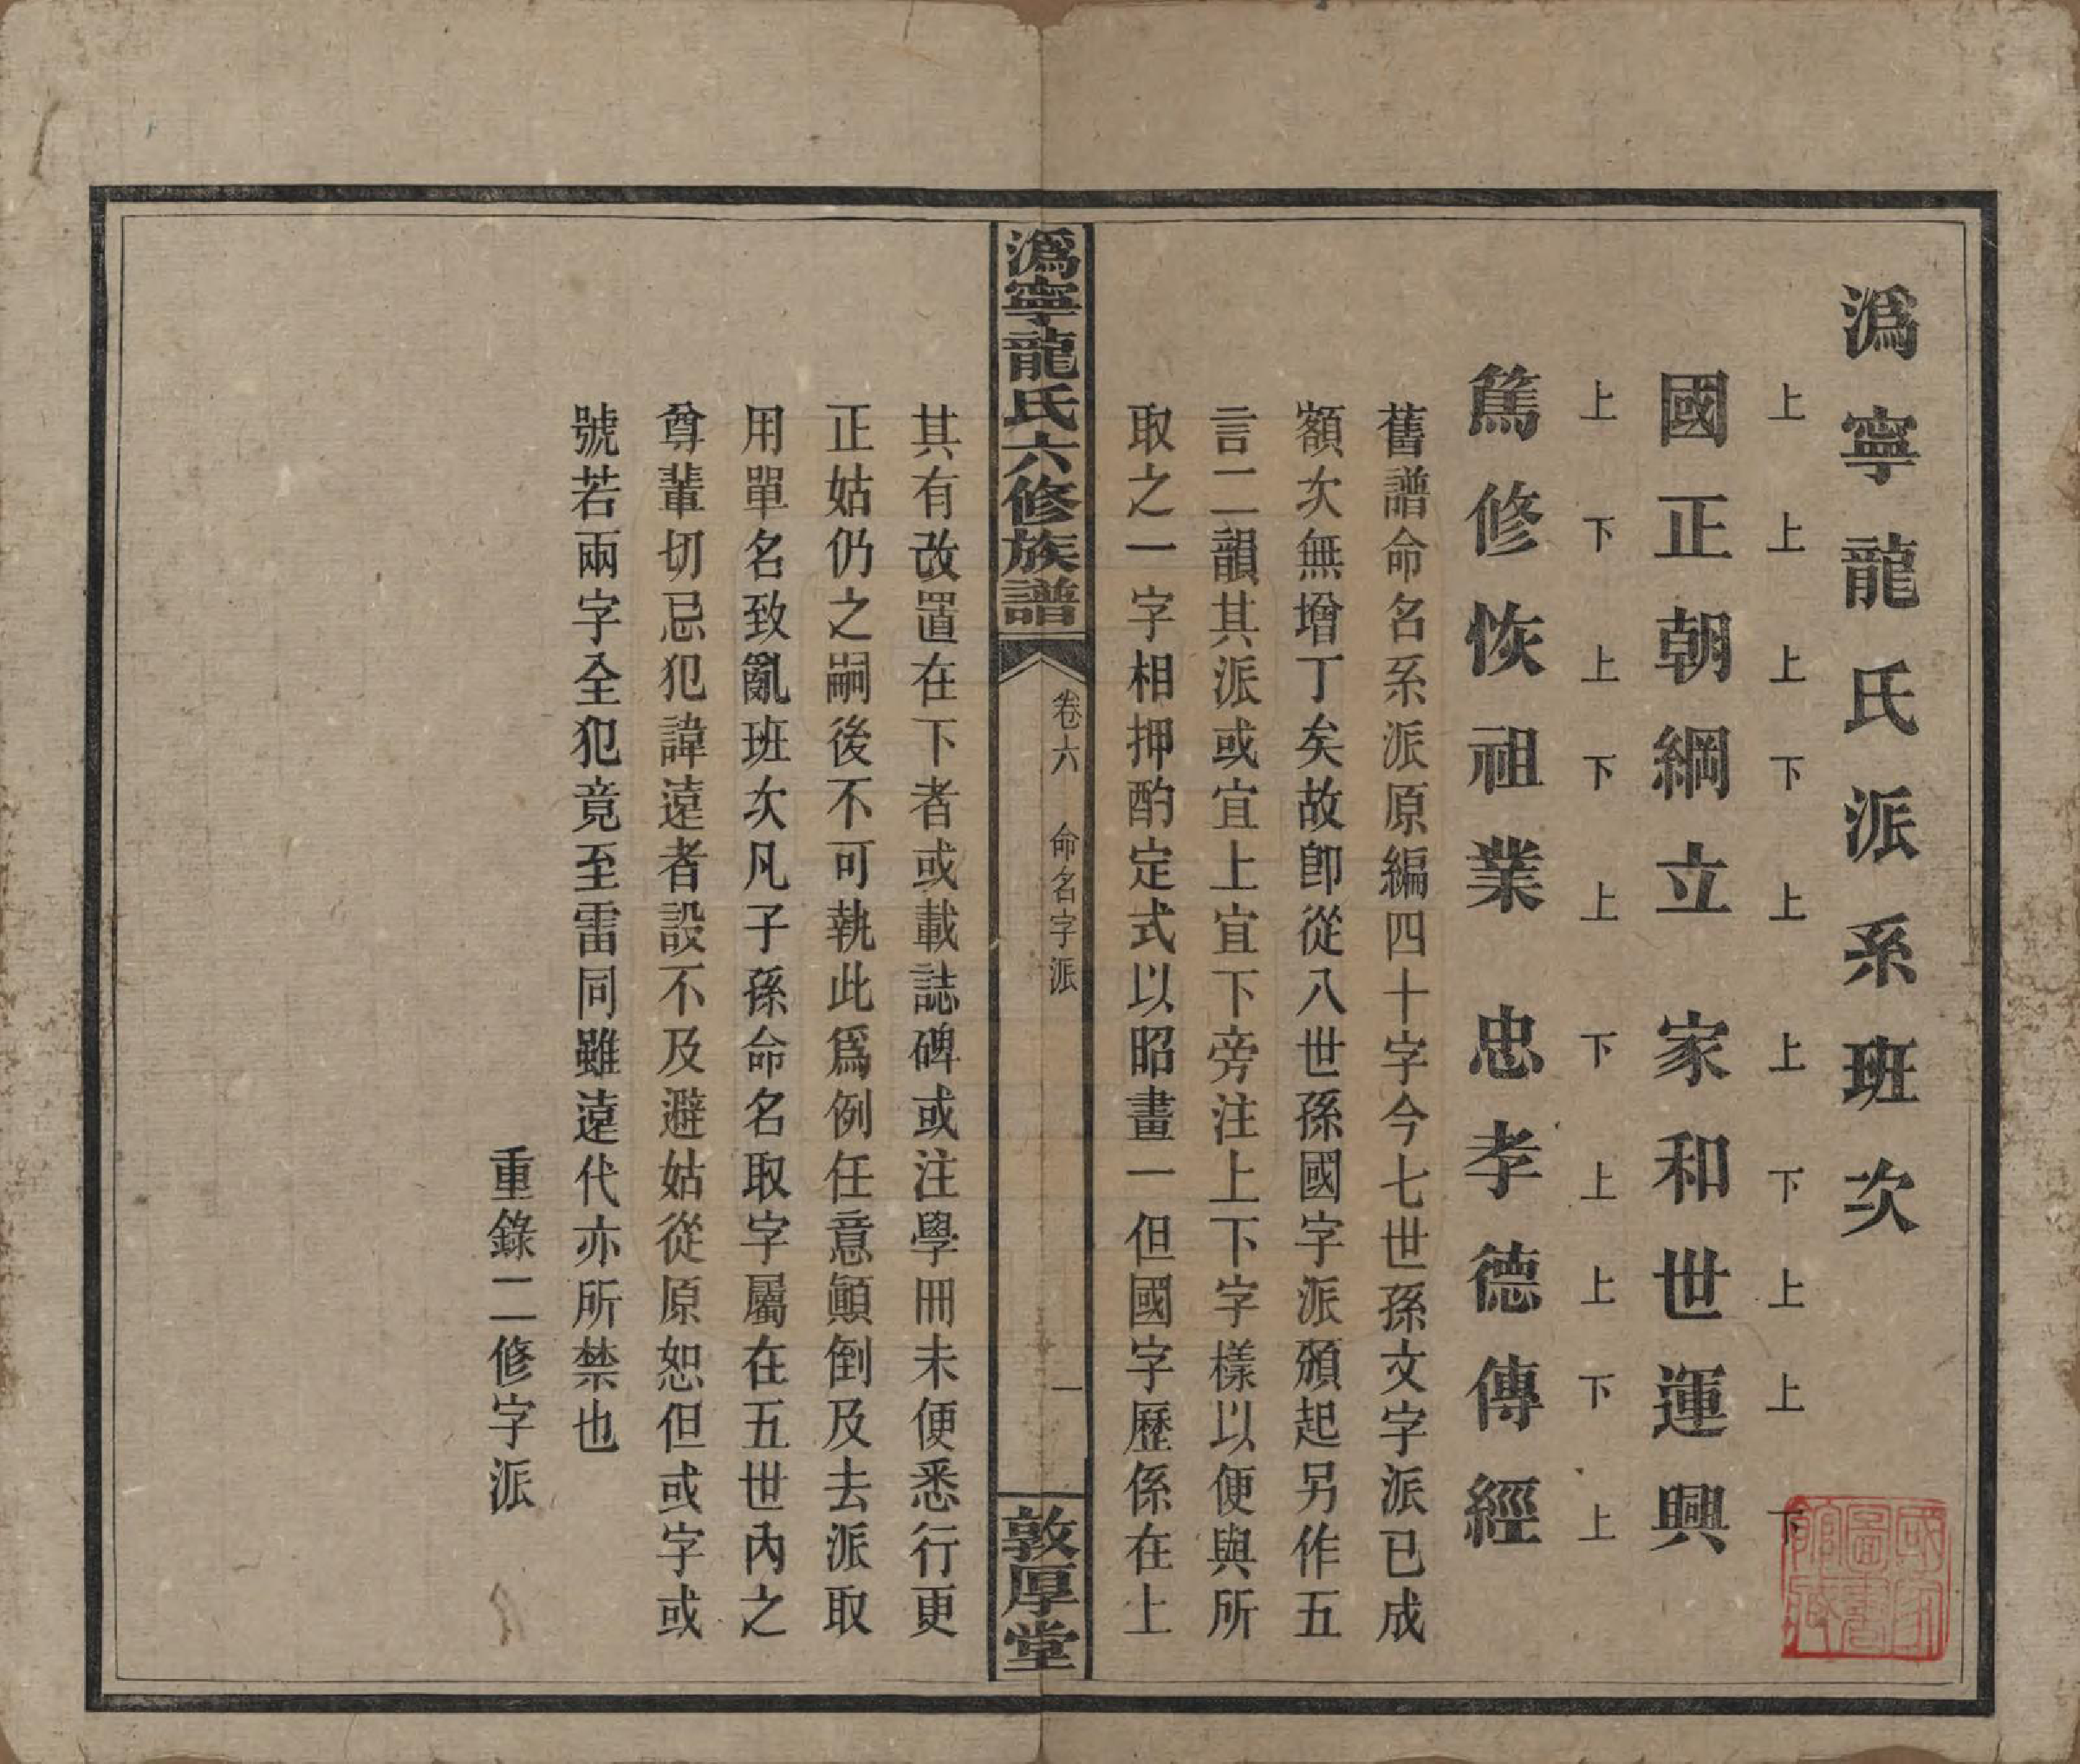 溈寧龍氏派系班次
上上上下上 上下上上下
國正朝綱立 家和世運興
上下上下上 下上上下上
篤修恢祖業 忠孝德傳經
舊譜命名系派原編四十字今七世孫文字派已成
額次無增丁矣故卽從八世孫國字派頒起另作五
言二韻其派或宜上宜下旁注上下字樣以便與所
取之一字相押酌定式以昭畫一但國字歷係在上
溈寧龍氏六修族譜 卷六 命名字派 一 敦厚堂
其有改置在下者或載誌碑或注學冊未便悉行更
正姑仍之嗣後不可執此爲例任意顚倒及去派取
用單名致亂班次凡子孫命名取字屬在五世內之
尊輩切忌犯諱遠者設不及避姑從原恕但或字或
號若兩字全犯竟至雷同雖遠代亦所禁也
重錄二修字派
國家圖書館藏